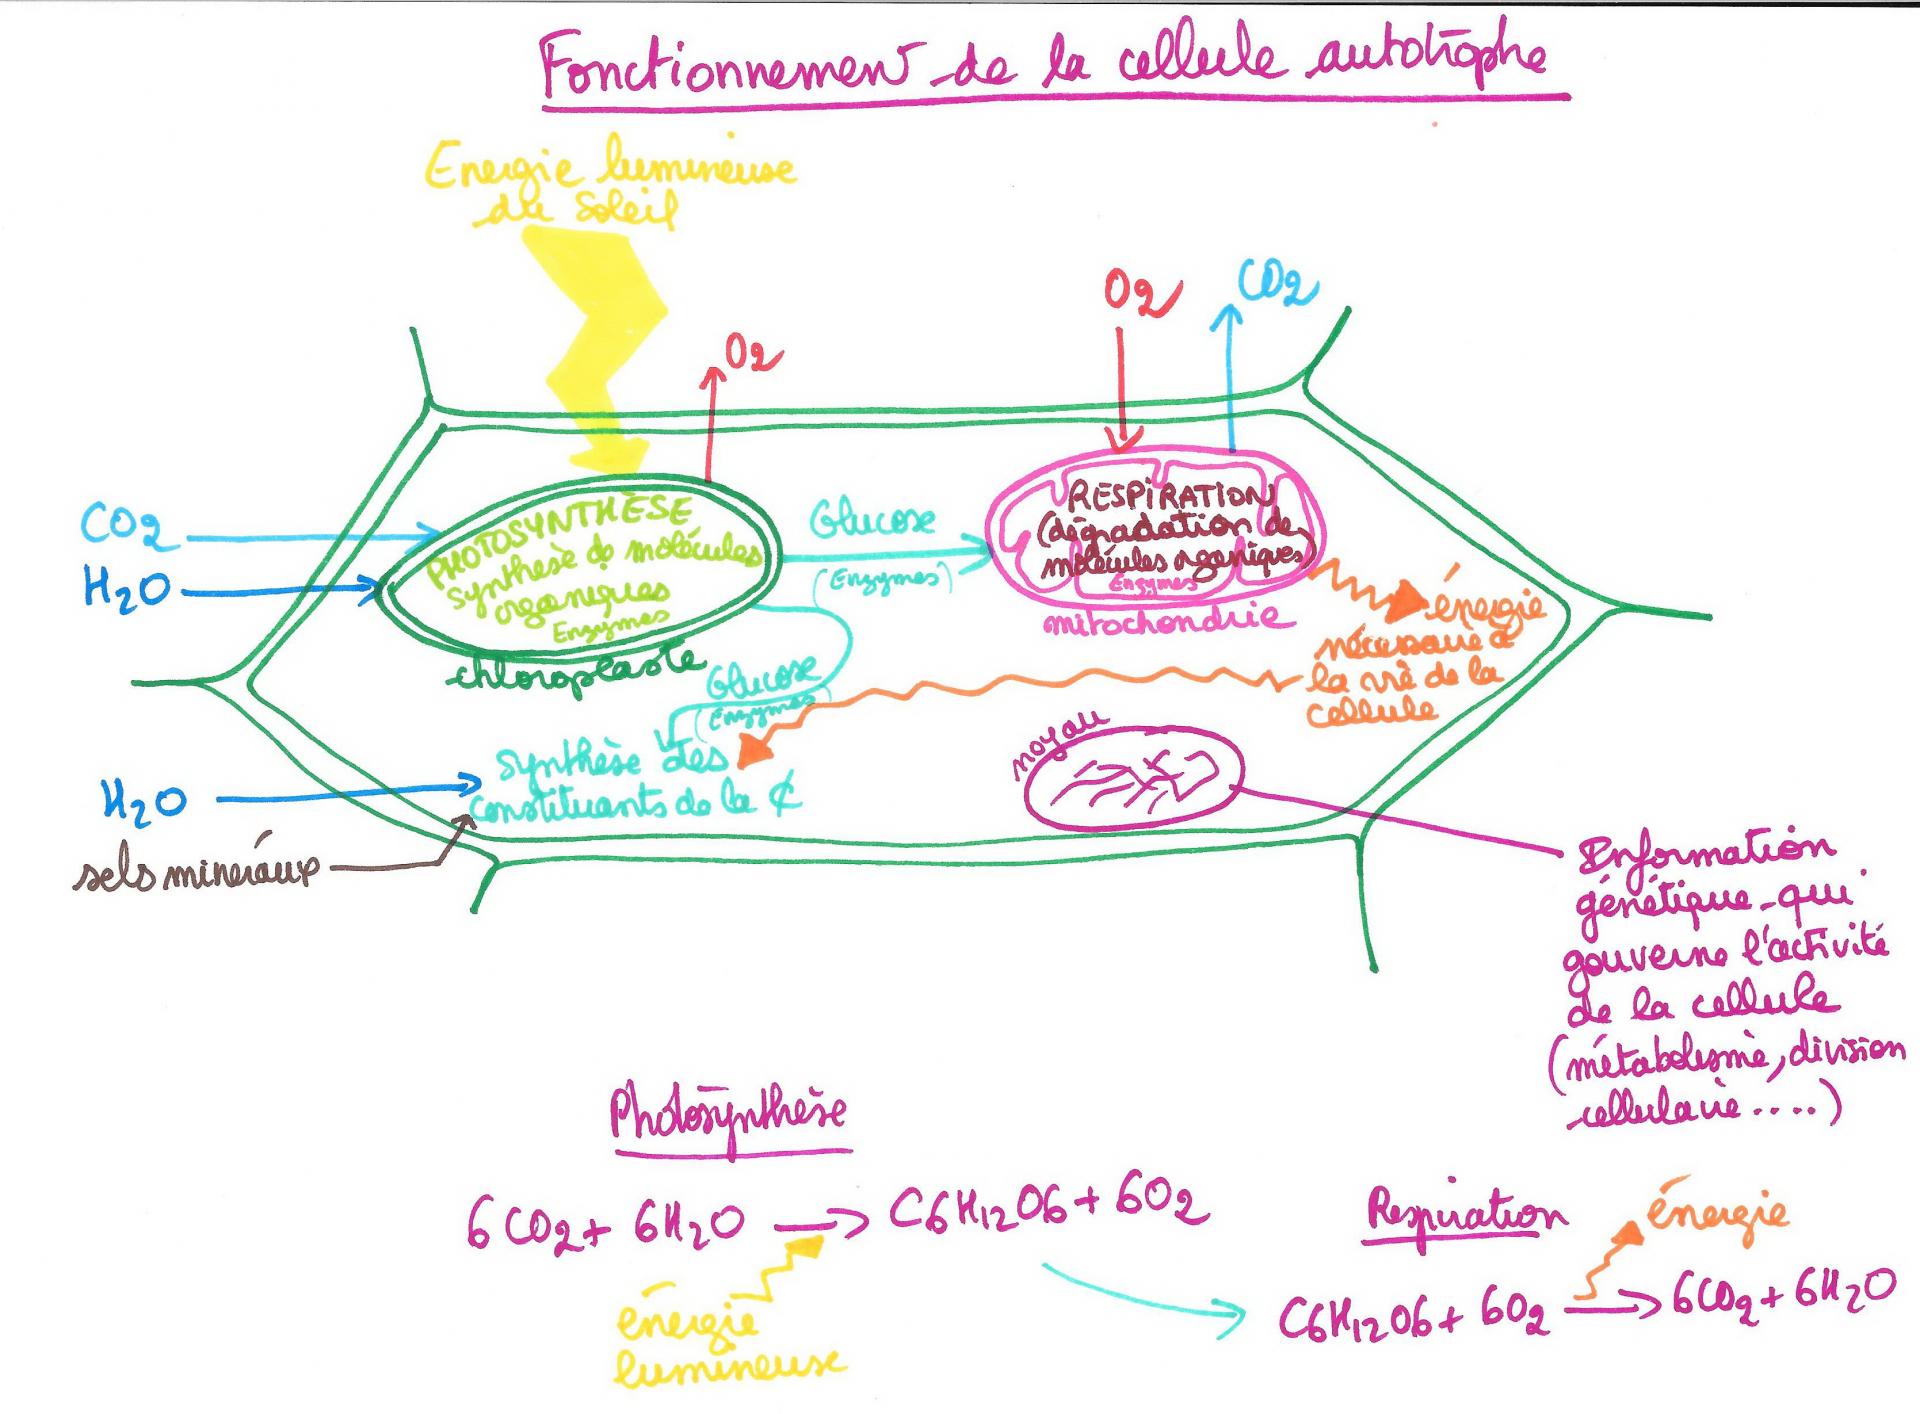 Fonctionnement de la cellule autotrophe
Energie lumineuse
du Soleil
O2
O2
CO2
CO2
H2O
PHOTOSYNTHÈSE
synthèse de molécules
organiques
Enzymes
chloroplaste
Glucose
(Enzymes)
RESPIRATION
(dégradation de
molécules organiques)
Enzymes
mitochondrie
énergie
nécessaire à
la vie de la
cellule
Glucose
(Enzymes)
Synthèse des
constituants de la ₵
H2O
sels minéraux
noyau
Information
génétique qui
gouverne l'activité
de la cellule
(métabolisme, division
cellulaire.....)
Photosynthèse
6CO2 + 6H2O → C6H12O6 + 6O2
énergie
lumineuse
Respiration
énergie
C6H12O6 + 6O2 → 6CO2 + 6H2O